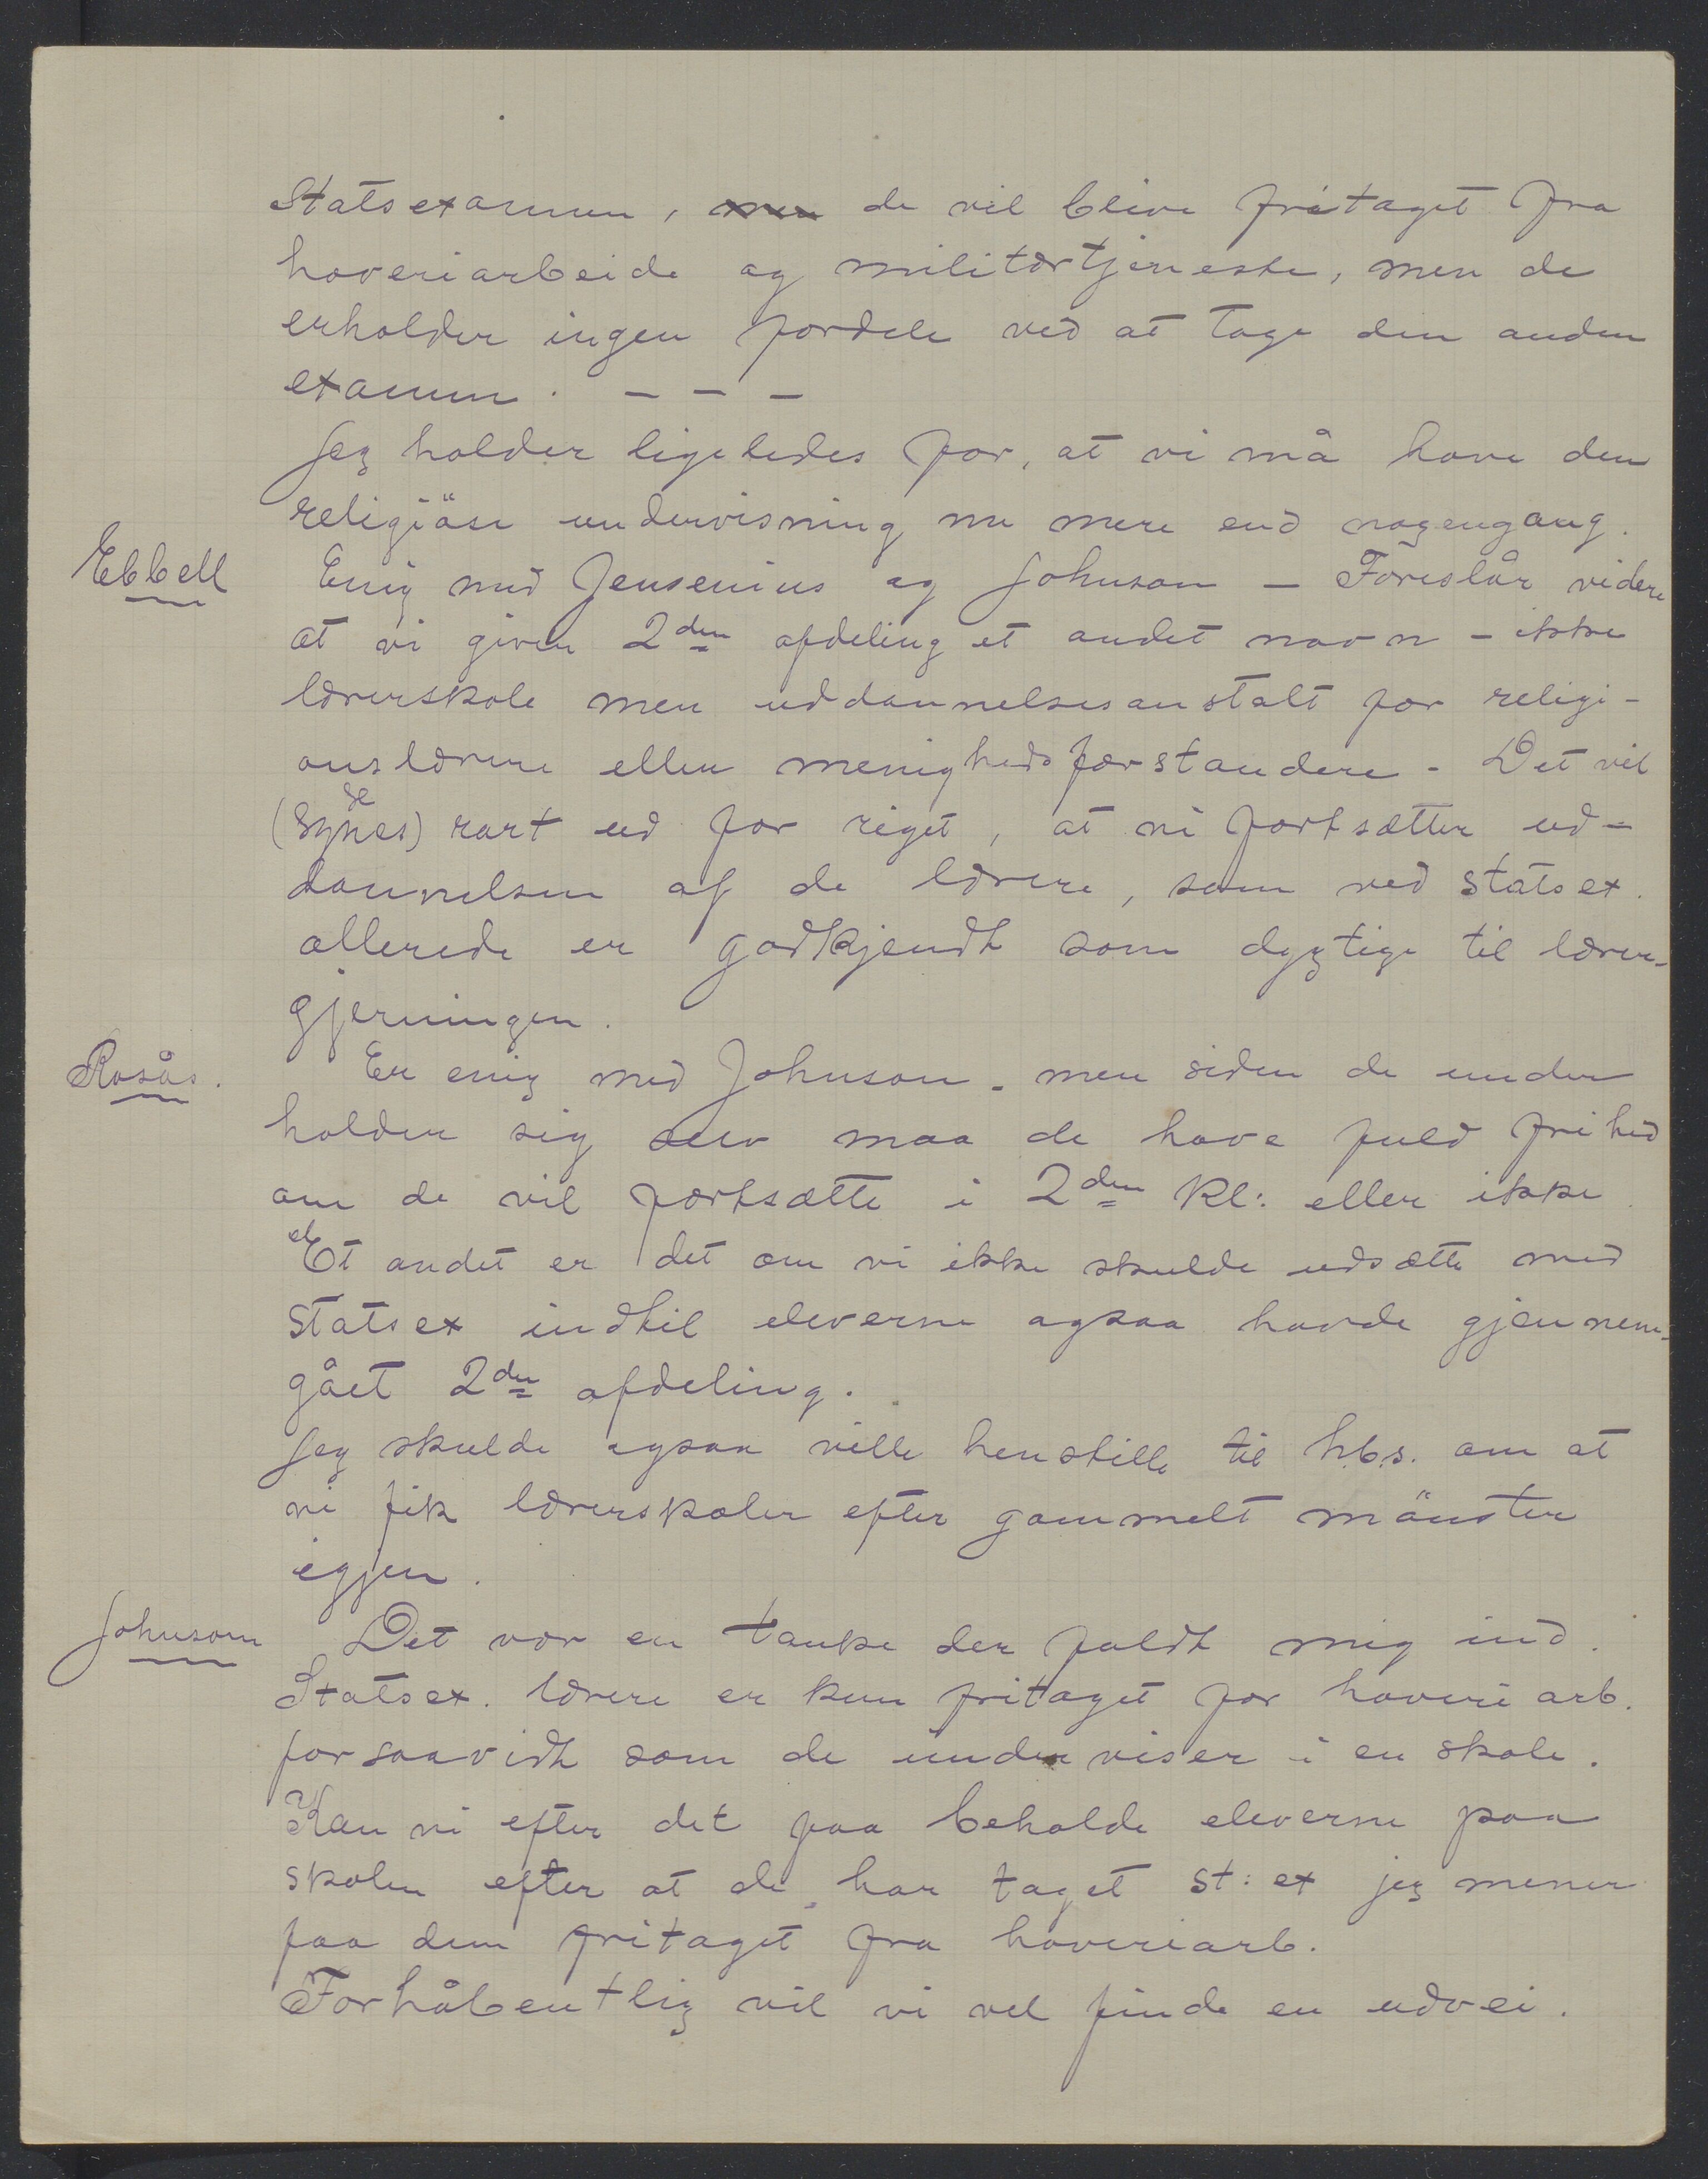 Statsexamen, men de vil blive fritaget fra
hoveriarbeide og militærtjeneste, men de
erholder ingen fordele ved at tage den anden
examen. - - -
Jeg holder ligeledes for, at vi må have den
religiöse undervisning nu mere end nogengang.
Ebbell Enig med Jensenius og Johnson - Foreslår videre
at vi giver 2den afdeling et andet navn - ikke
lærerskole men uddannelsesanstalt for religi-
onslærere eller menighedsforstandere - Det vil
(synes) se rart ud for riget, at vi fortsætter ud-
dannelsen af de lærere, som ved statsex.
allerede er godkjendt som dygtige til lærer-
gjerningen.
Rosås. Er enig med Johnson - men siden de under
holder sig selv maa de have fuld frihed
om de vil fortsætte i 2den kl: eller ikke
Et andet er det om vi ikke skulde udsætte med
statsex indtil eleverne ogsaa havde gjennem-
gået 2den afdeling.
Jeg skulde ogsaa ville henstille til h.b.s. om at
vi fik lærerskoler efter gammelt mönster
igjen.
Johnson Det var en tanke der faldt mig ind.
Statsex. lærere er kun fritaget for hoveriarb.
forsaavidt som de underviser i en skole.
Kan vi efter det faa beholde eleverne paa
skolen efter at de har taget st: ex jeg mener
faa dem fritaget fra hoveriarb.
Forhåbentlig vil vi vel finde en udvei.